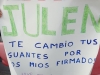 JULEN
TE CAMBIO TUS
GUANTES POR
LOS MIOS FIRMADOS